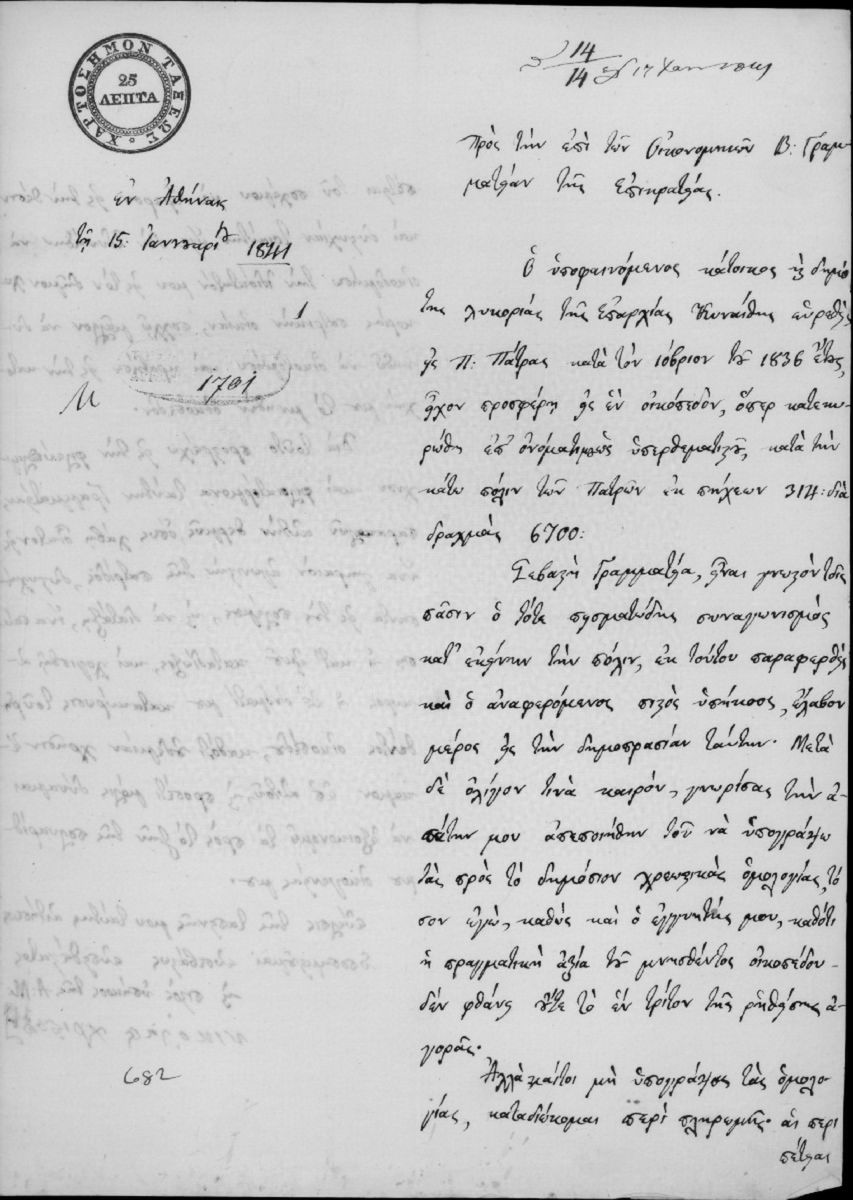 ΧΑΡΤΟΣΗΜΟΝ ΤΑΞΕΩΣ
25
ΛΕΠΤΑ
14
14
Πρὸς τὴν ἐπὶ τῶν Οἰκονομικῶν Β: Γραμ-
ματείαν τῆς Ἐπικρατείας.
ἐν Ἀθήναις
τῇ 15: Ἰανουαρίου 1841
1
1791
Ὁ ὑποφαινόμενος κάτοικος δήμου
της Λυκουριάς τῆς Ἐπαρχίας Κυναίθης εὑρεθεὶς
εἰς Π: Πάτρας κατὰ τὸν 10βριον τοῦ 1836 ἔτους,
εἶχον προσφέρῃ εἰς ἓν οἰκόπεδον, ὅπερ κατεκυ-
ρώθη ἐπ' ὀνόματί μου ὡς ὑπερθεματιστοῦ, κατὰ τὴν
κάτω πόλιν τῶν Πατρῶν ἐκ πήχεων 314: διὰ
δραχμὰς 6700:
Σεβαστὴ Γραμματεία, εἶναι γνωστὸν τοῖς
πᾶσιν ὁ τότε πεισματώδης συναγωνισμὸς
κατ' ἐκείνην τὴν πόλιν, ἐκ τούτου παραφερθεὶς
καὶ ὁ ἀναφερόμενος πιστὸς ὑπήκοος, ἔλαβον
μέρος εἰς τὴν δημοπρασίαν ταύτην. Μετὰ
δὲ ὀλίγον τινὰ καιρὸν, γνωρίσας τὴν ἀ-
πάτην μου ἀπεποιήθην τοῦ νὰ ὑπογράψω
τὰς πρὸς τὸ δημόσιον χρεωστικὰς ὁμολογίας, τό
σον ἐγὼ, καθὼς καὶ ὁ ἐγγυητής μου, καθότι
ἡ πραγματικὴ ἀξία τοῦ μνησθέντος οἰκοπέδου
δὲν φθάνει οὔτε τὸ ἓν τρίτον τῆς ῥηθείσης ἀ-
γορᾶς.
Ἀλλὰ καίτοι μὴ ὑπογράψας τὰς ὁμολο-
γίας, καταδιώκομαι περὶ πληρωμῆς. αἱ περι
πέτειαι
682